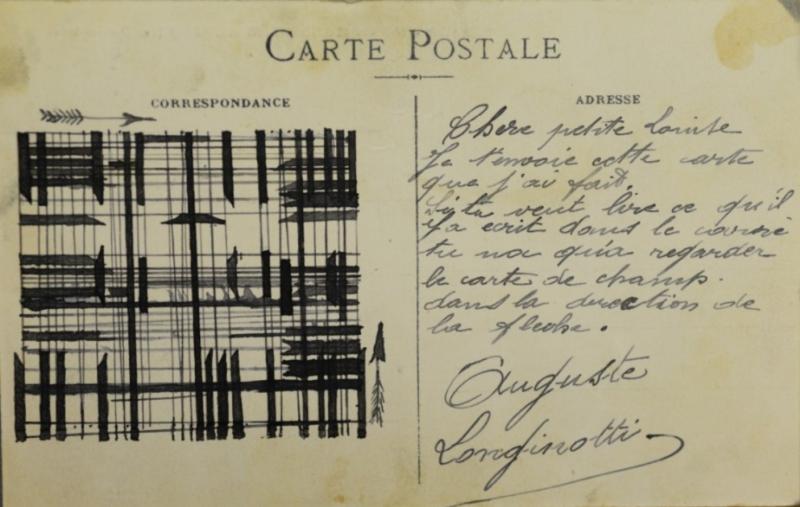 CARTE POSTALE
CORRESPONDANCE
ADRESSE
Chere petite Louise
Je t'envoie cette carte
que j'ai fait.
Si tu veut lire ce qu'il
y a ecrit dans le carré
tu na qu'a regarder
la carte de champ.
dans la direction de
la fleche.
Auguste
Longinotti